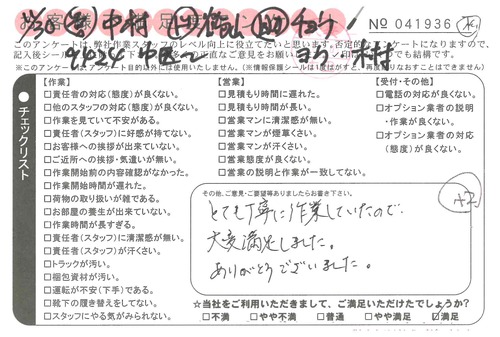 No 041936
このアンケートは、弊社作業スタッフのレベル向上に役立てたいと思います。否定的
※このアンケート目的以外には使用いたしません。
チェックリスト
【作業】
□責任者の対応(態度)が良くない。
□他のスタッフの対応(態度)が良くない。
□作業を見ていて不安がある。
□責任者(スタッフ)に好感が持てない。
□お客様への挨拶が出来ていない。
□ご近所への挨拶・気遣いが無い。
□作業開始前の内容確認がなかった。
□作業開始時間が遅れた。
□荷物の取り扱いが雑である。
□お部屋の養生が出来ていない。
□作業時間が長すぎる。
□責任者(スタッフ)に清潔感が無い。
□責任者(スタッフ)が汗くさい。
□トラックが汚い。
□梱包資材が汚い。
□運転が不安(下手)である。
□靴下の履き替えをしてない。
□スタッフにやる気がみられない。
【営業】
□見積もり時間に遅れた。
□見積もり時間が長い。
□営業マンに清潔感が無い。
□営業マンが煙草くさい。
□営業マンが汗くさい。
□営業態度が良くない。
□営業の説明と作業が一致してない。
【受付・その他】
□電話の対応が良くない。
□オプション業者の説明
・作業が良くない。
□オプション業者の対応
(態度)が良くない。
その他、ご意見・ご要望等ありましたらお書き下さい。
とても丁寧に作業していたので、
大変満足しました。
ありがとうございました。
☆当社をご利用いただきまして、ご満足いただけたでしょうか?
□不満 □やや不満 □普通 □やや満足 □満足